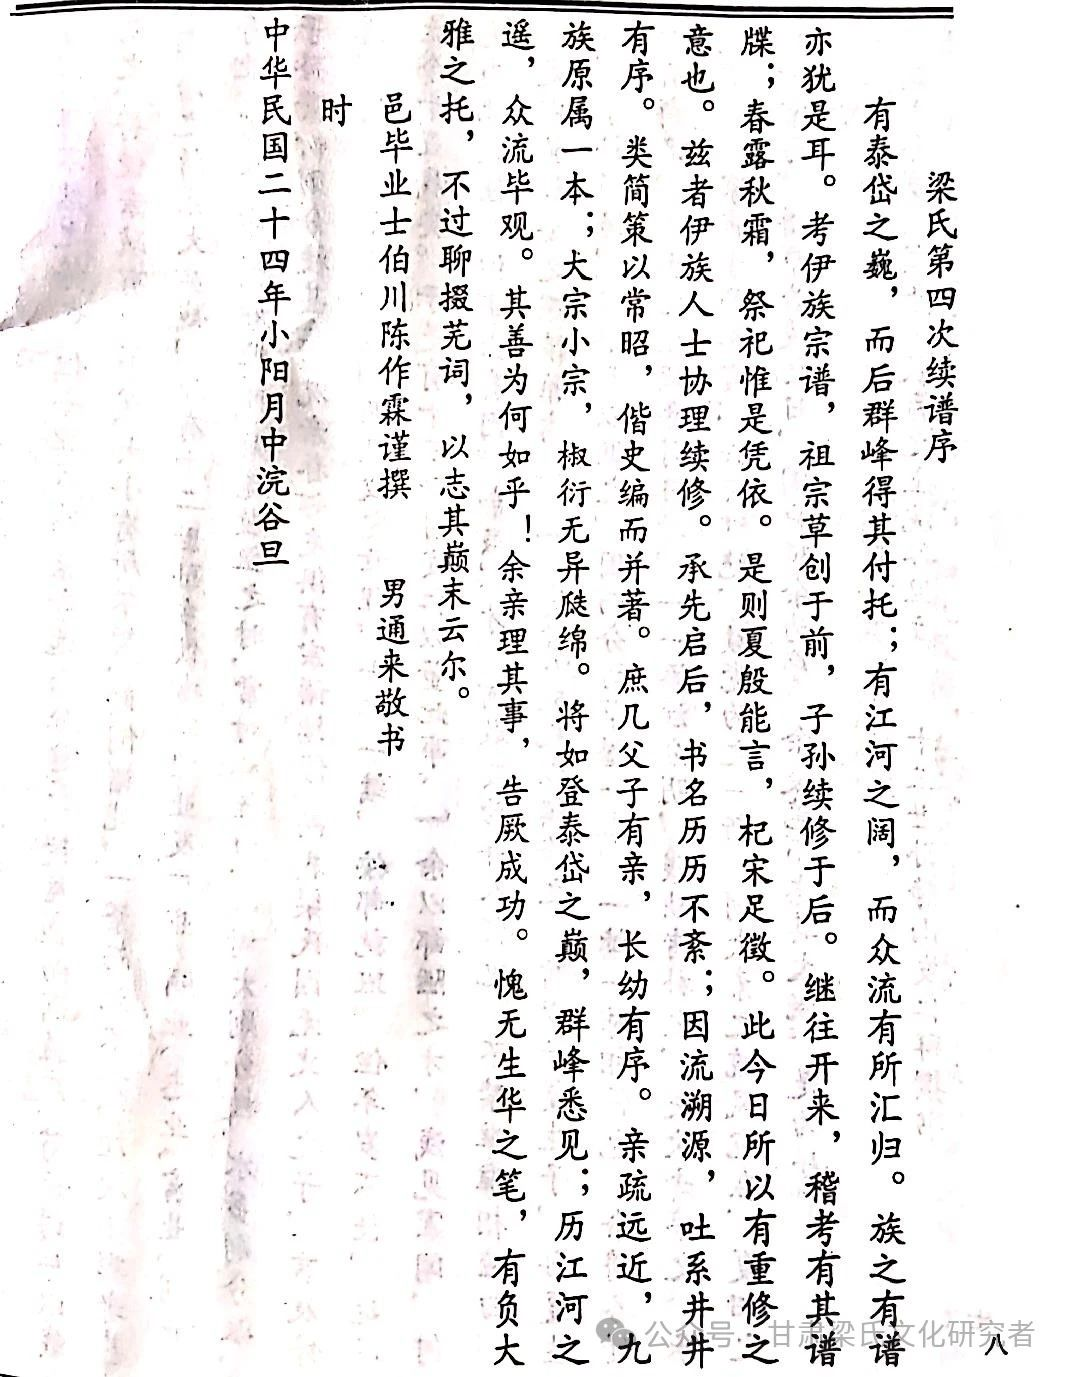 梁氏第四次续谱序
有泰岱之巍，而后群峰得其付托；有江河之阔，而众流有所汇归。族之有谱
亦犹是耳。考伊族宗谱，祖宗草创于前，子孙续修于后。继往开来，稽考有其谱
牒；春露秋霜，祭祀惟是凭依。是则夏殷能言，杞宋足徵。此今日所以有重修之
意也。兹者伊族人士协理续修。承先启后，书名历历不紊；因流溯源，吐系井井
有序。类简策以常昭，偕史编而并著。庶几父子有亲，长幼有序。亲疏远近，九
族原属一本；大宗小宗，椒衍无异瓞绵。将如登泰岱之巅，群峰悉见；历江河之
遥，众流毕观。其善为何如乎！余亲理其事，告厥成功。愧无生华之笔，有负大
雅之托，不过聊掇芜词，以志其巅末云尔。
邑毕业士伯川陈作霖谨撰　男通来敬书
时
中华民国二十四年小阳月中浣谷旦
八
公众号：甘肃梁氏文化研究者